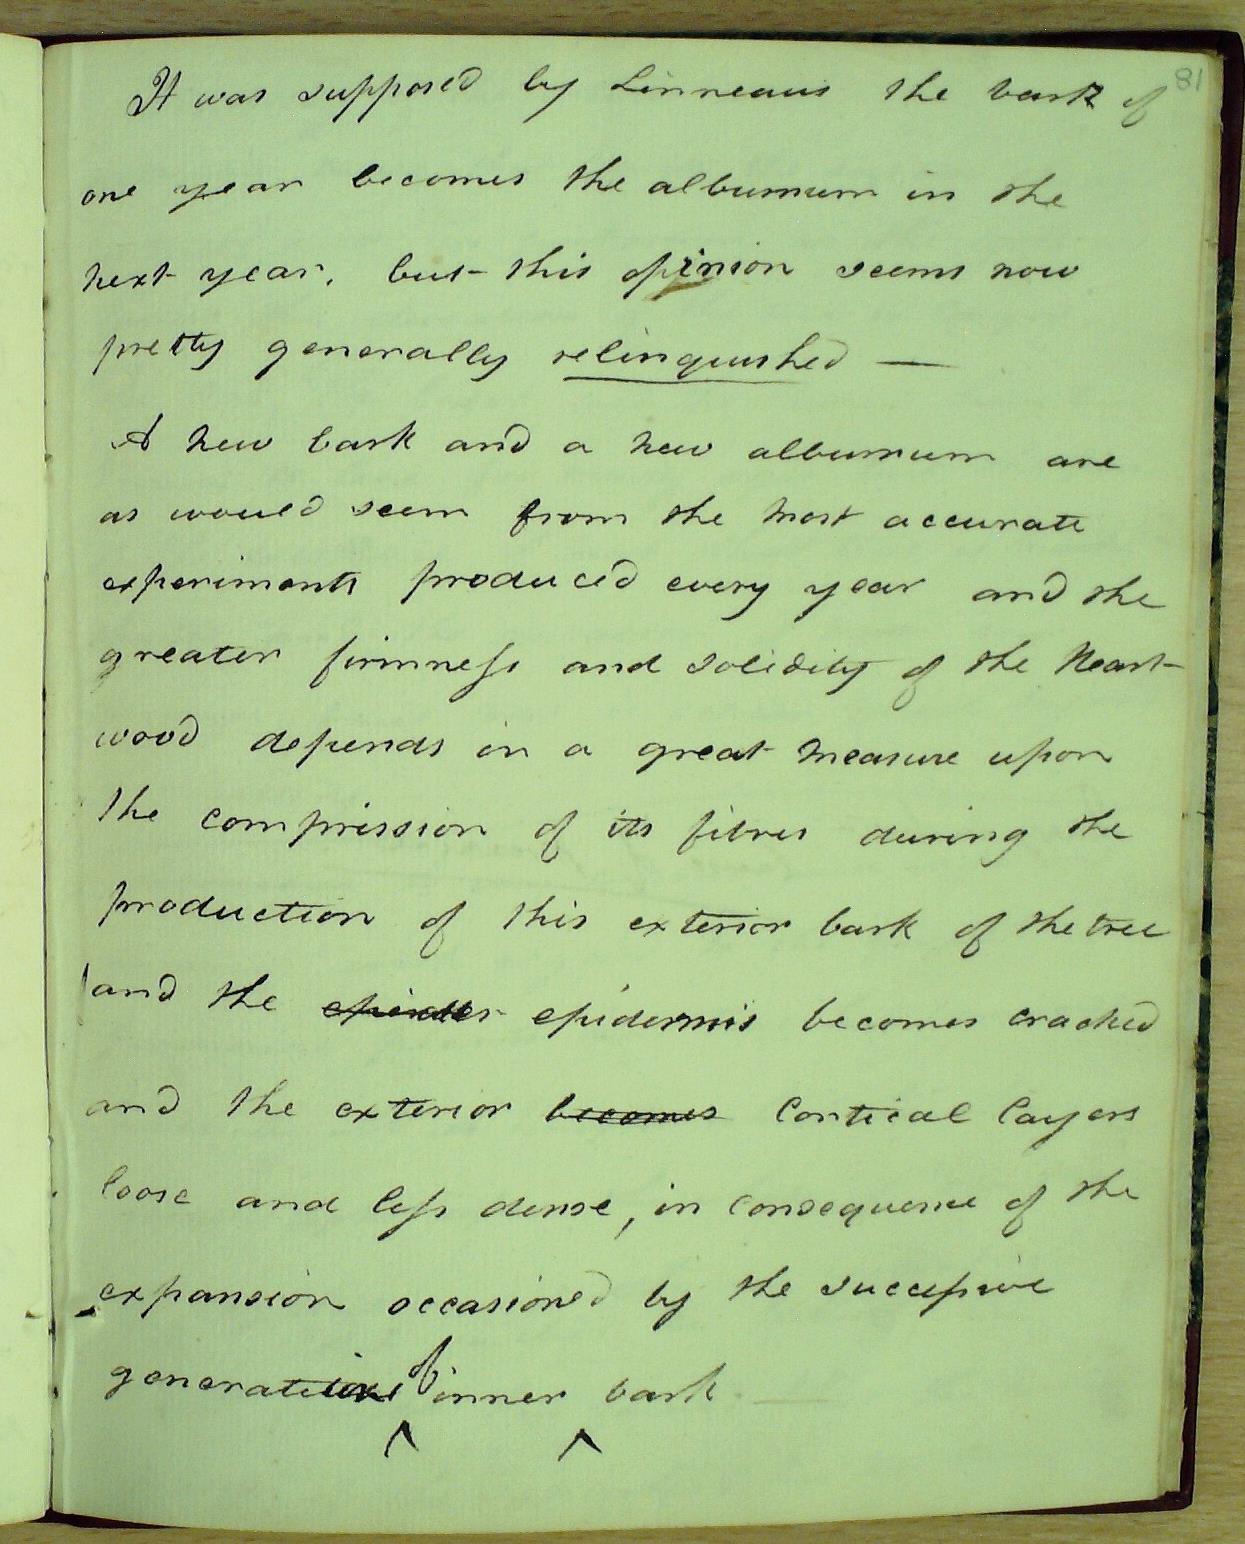 81
It was supposed by Linneaus the bark of
one year becomes the alburnum in the
next year, but this opinion seems now
pretty generally relinquished —
A new bark and a new alburnum are
as would seem from the most accurate
experiments produced every year and the
greater firmness and solidity of the Heart-
wood depends in a great measure upon
the compression of its fibres during the
production of this exterior bark of the tree
and the epidermis becomes cracked
and the exterior becomes Cortical layers
loose and less dense, in consequence of the
expansion occasioned by the successive
generations of inner bark